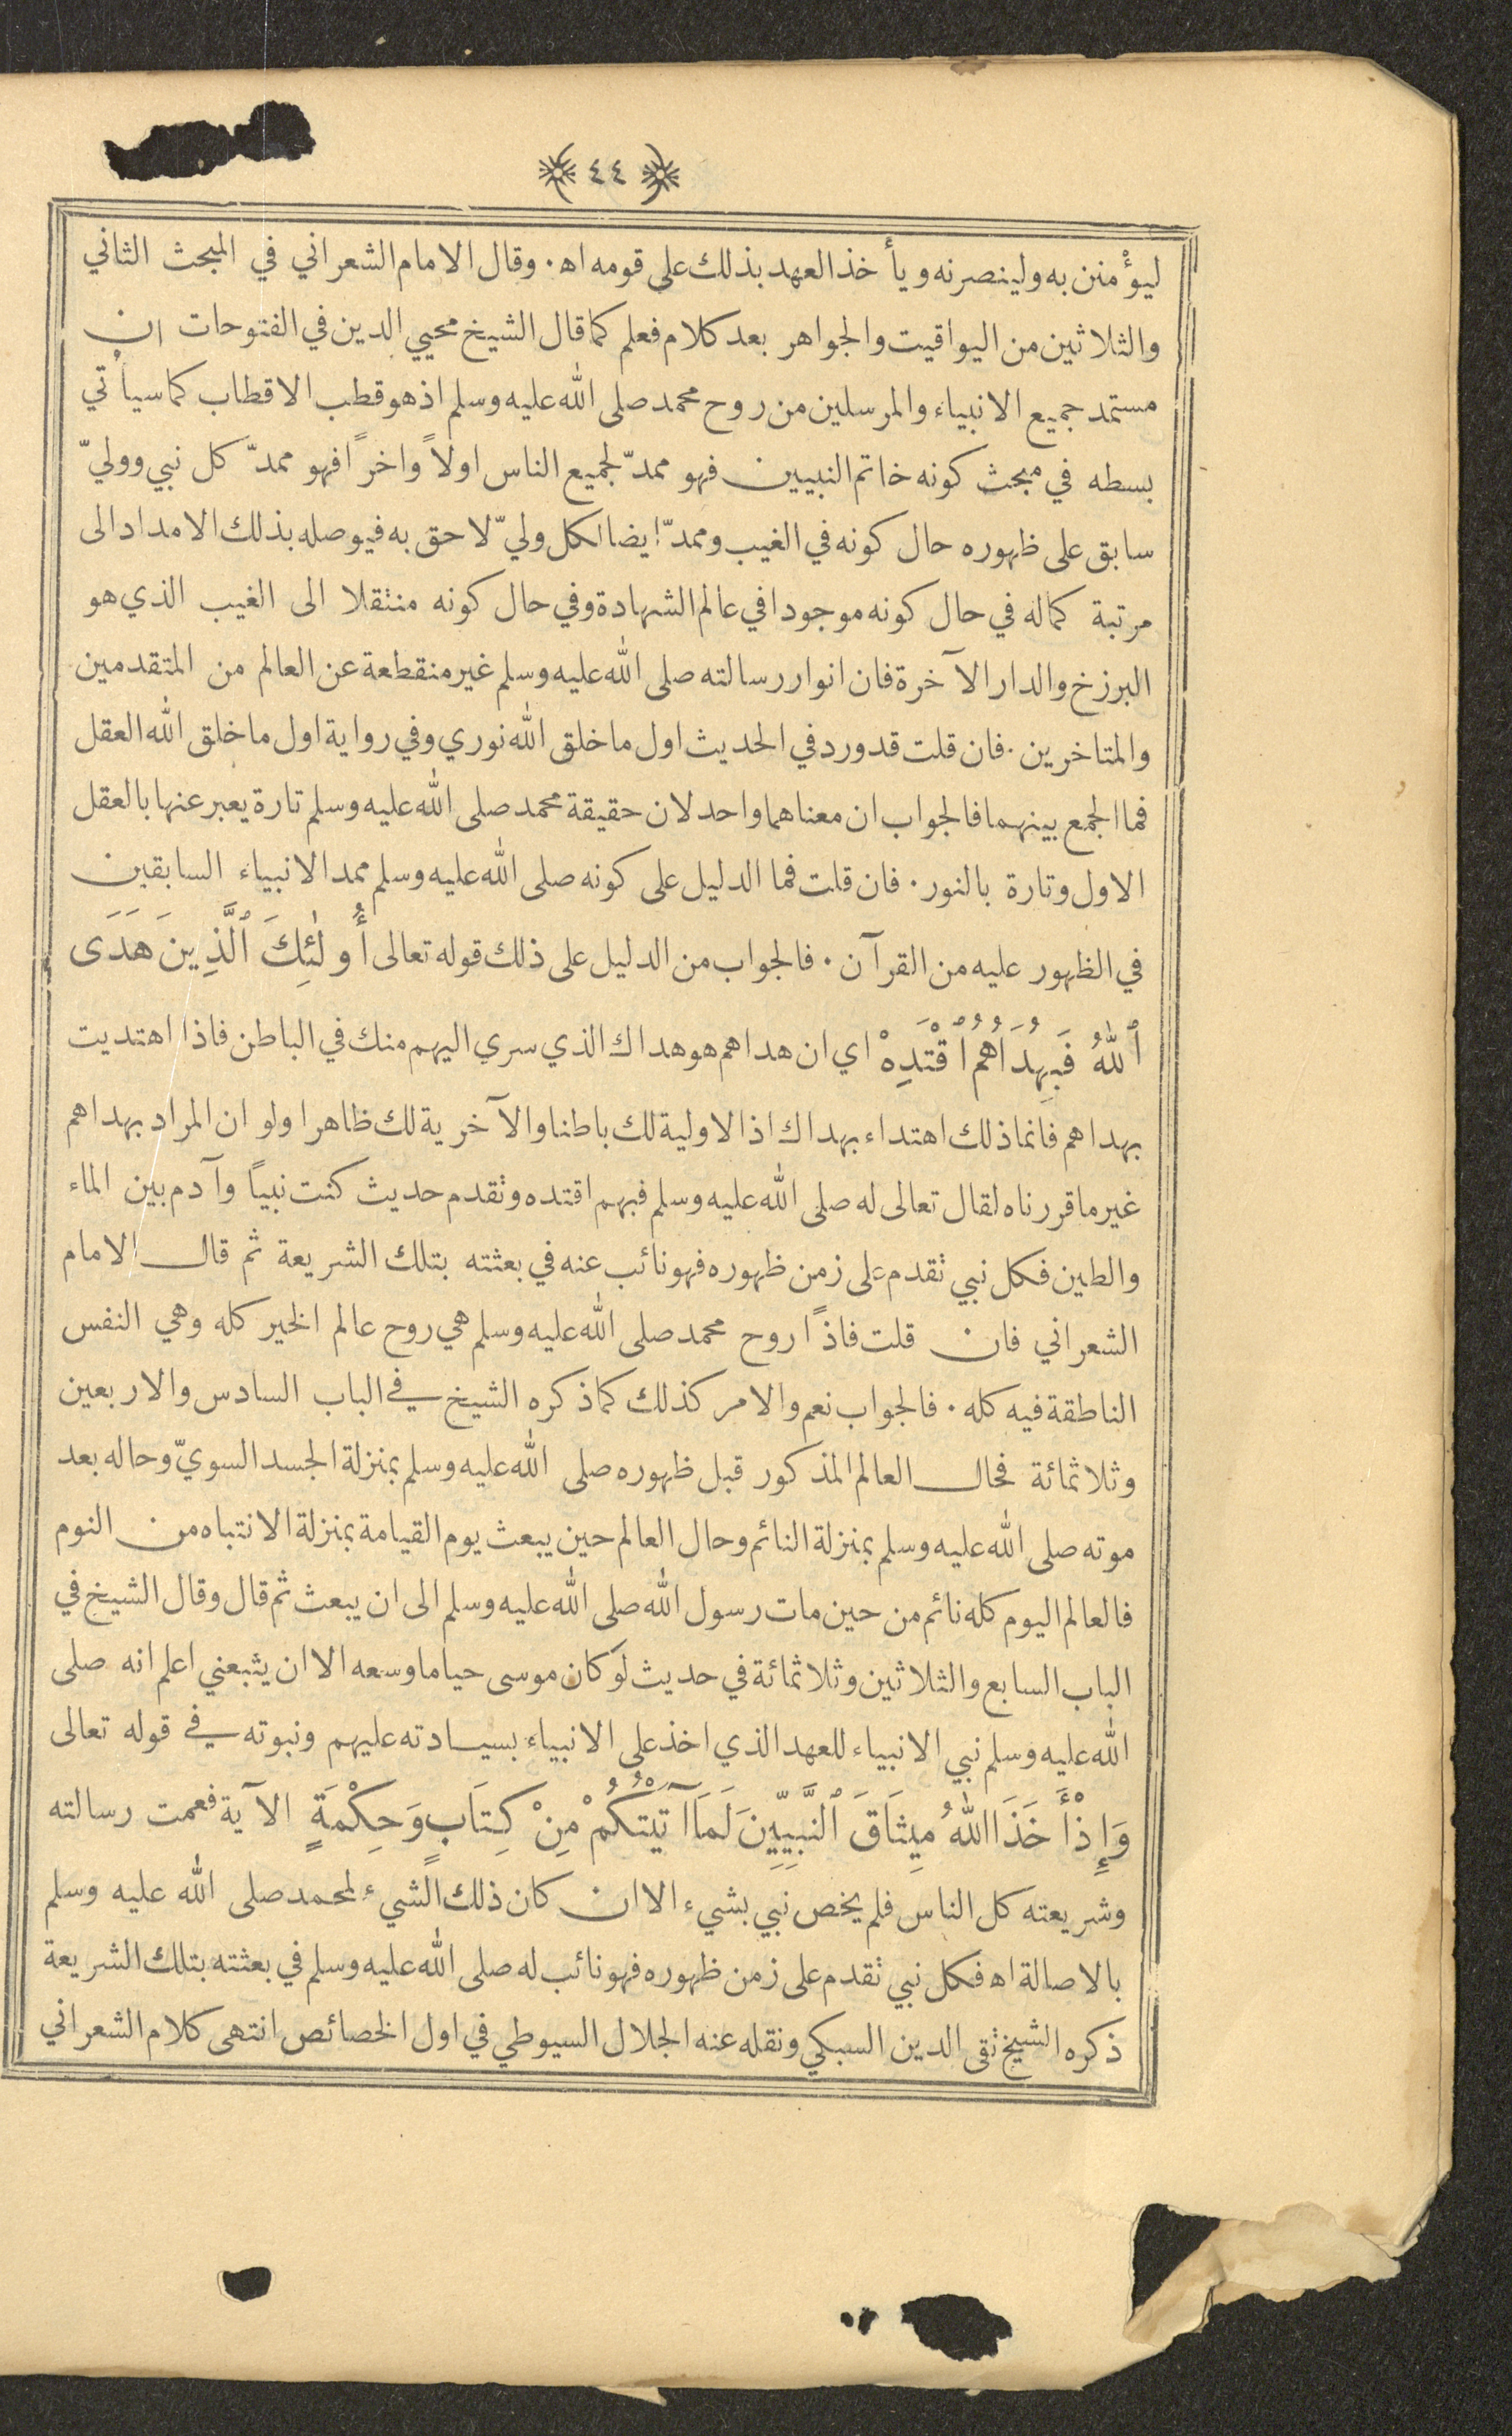 ٤٤
ليؤمنن به ولينصرنه ويأخذ العهد بذلك على قومه اه. وقال الامام الشعراني في المبحث الثاني
والثلاثين من اليواقيت والجواهر بعد كلام فعلم كما قال الشيخ محيي الدين في الفتوحات ان
مستمد جميع الانبياء والمرسلين من روح محمد صلى الله عليه وسلم اذ هو قطب الاقطاب كما سيأتي
بسطه في مبحث كونه خاتم النبيين فهو ممدّ لجميع الناس اولاً واخراً فهو ممدّ كل نبي ووليّ
سابق على ظهوره حال كونه في الغيب وممدّ ايضا لكل وليّ لاحق به فيوصله بذلك الامداد الى
مرتبة كماله في حال كونه موجودا في عالم الشهادة وفي حال كونه منتقلا الى الغيب الذي هو
البرزخ والدار الآخرة فان انوار رسالته صلى الله عليه وسلم غير منقطعة عن العالم من المتقدمين
والمتاخرين. فان قلت قد ورد في الحديث اول ما خلق الله نوري وفي رواية اول ما خلق الله العقل
فما الجمع بينهما فالجواب ان معناهما واحد لان حقيقة محمد صلى الله عليه وسلم تارة يعبر عنها بالعقل
الاول وتارة بالنور. فان قلت فما الدليل على كونه صلى الله عليه وسلم ممد الانبياء السابقين
في الظهور عليه من القرآن. فالجواب من الدليل على ذلك قوله تعالى أُولٰئِكَ ٱلَّذِينَ هَدَى
ٱللهُ فَبِهُدَاهُمُ ٱقْتَدِهْ اي ان هداهم هو هداك الذي سري اليهم منك في الباطن فاذا اهتديت
بهداهم فانما ذلك اهتداء بهداك اذ الاولية لك باطنا والآخرية لك ظاهرا ولو ان المراد بهداهم
غير ما قررناه لقال تعالى له صلى الله عليه وسلم فبهم اقتده وتقدم حديث كنت نبياً وآدم بين الماء
والطين فكل نبي تقدم على زمن ظهوره فهو نائب عنه في بعثته بتلك الشريعة ثم قال الامام
الشعراني فان قلت فاذاً روح محمد صلى الله عليه وسلم هي روح عالم الخير كله وهي النفس
الناطقة فيه كله. فالجواب نعم والامر كذلك كما ذكره الشيخ في الباب السادس والاربعين
وثلاثمائة فحال العالم المذكور قبل ظهوره صلى الله عليه وسلم بمنزلة الجسد السويّ وحاله بعد
موته صلى الله عليه وسلم بمنزلة النائم وحال العالم حين يبعث يوم القيامة بمنزلة الانتباه من النوم
فالعالم اليوم كله نائم من حين مات رسول الله صلى الله عليه وسلم الى ان يبعث ثم قال وقال الشيخ في
الباب السابع والثلاثين وثلاثمائة في حديث لو كان موسى حيا ما وسعه الا ان يتبعني اعلم انه صلى
الله عليه وسلم نبي الانبياء للعهد الذي اخذ على الانبياء بسيادته عليهم ونبوته في قوله تعالى
وَإِذْ أَخَذَ اللهُ مِيثَاقَ ٱلنَّبِيِّينَ لَمَا آتَيْتُكُمْ مِنْ كِتَابٍ وَحِكْمَةٍ الآية فعمت رسالته
وشريعته كل الناس فلم يخص نبي بشيء الا ان كان ذلك الشيء لمحمد صلى الله عليه وسلم
بالاصالة اه فكل نبي تقدم على زمن ظهوره فهو نائب له صلى الله عليه وسلم في بعثته بتلك الشريعة
ذكره الشيخ تقي الدين السبكي ونقله عنه الجلال السيوطي في اول الخصائص انتهى كلام الشعراني